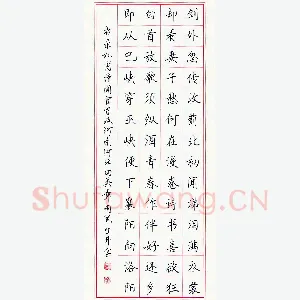 剑外忽传收蓟北初闻涕泪满衣裳
却看妻子愁何在漫卷诗书喜欲狂
白首放歌须纵酒青春作伴好还乡
即从巴峡穿巫峡便下襄阳向洛阳
诗闻官军收河南河北
Shufawang.CN